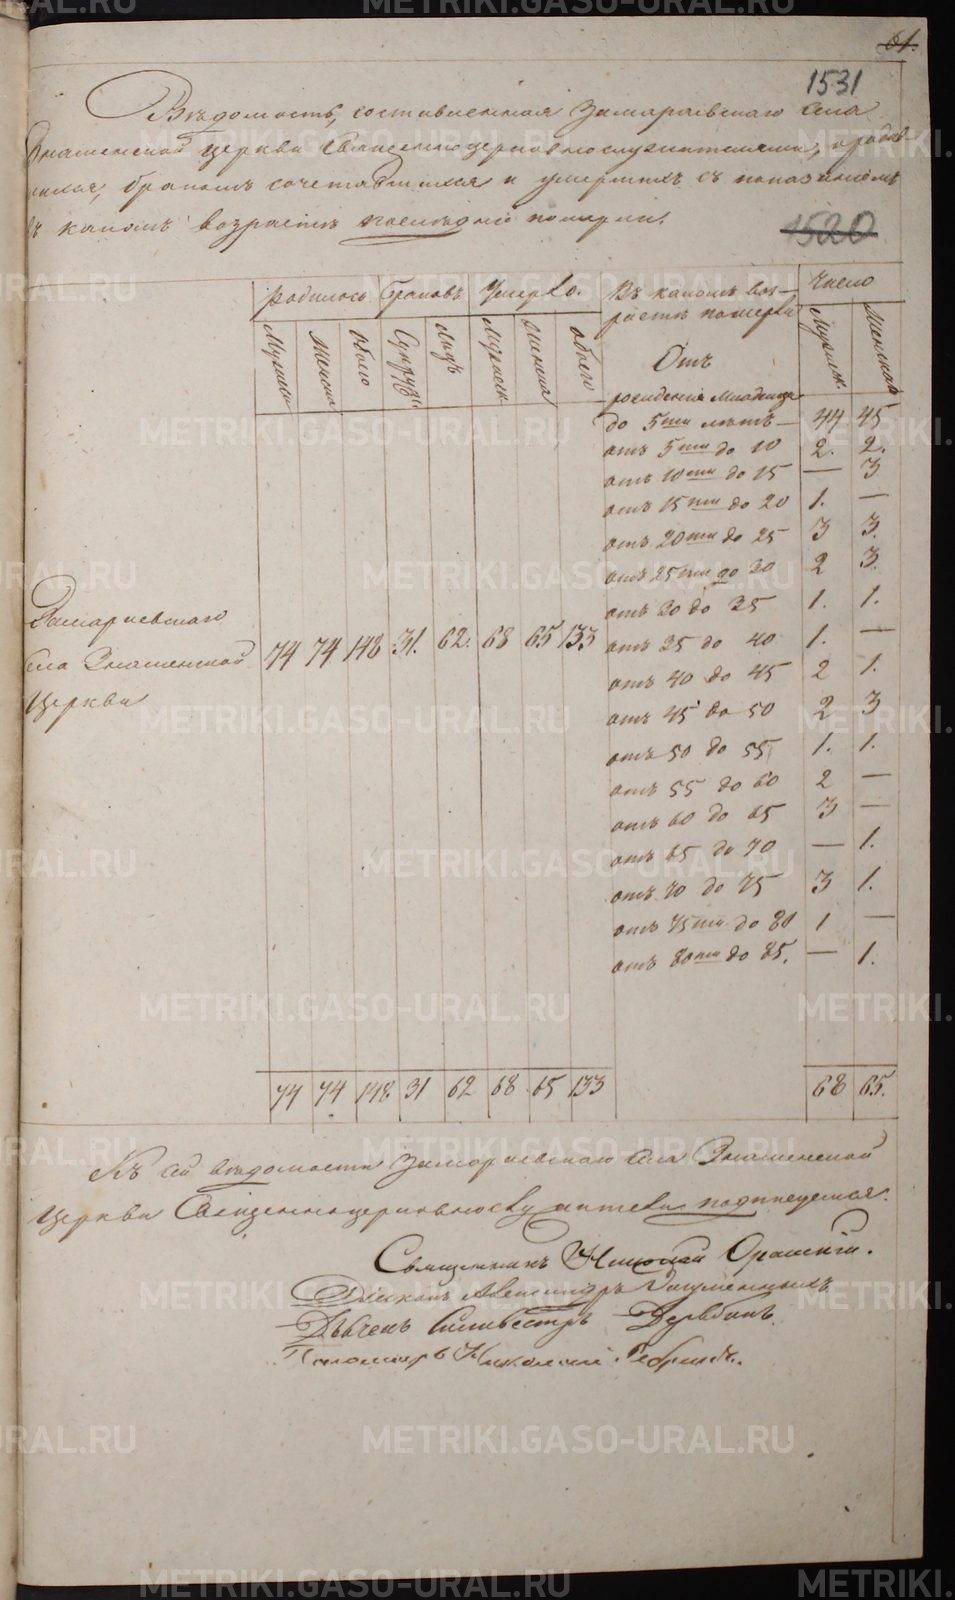 61.
1531
Вѣдомость, составленная Замараевскаго села
Знаменской церкви священноцерковнослужителями, о родив-
шихся, бракомъ сочетавшихся и умершихъ съ показаніемъ
въ какомъ возрастѣ послѣдніе померли.
1520
Родилось Браковъ Умерло. Въ какомъ воз- Число
растѣ померли
Мужеск. Женска Обоего Супруж. Людъ Мужеск. Женска Обоего Мужеск. Женскаго
Отъ
рожденія Младенца
до 5ти лѣтъ — 44 45
отъ 5ти до 10 2. 2.
отъ 10ти до 15 — 3
отъ 15ти до 20 1. —
отъ 20ти до 25 3 3.
отъ 25ти до 30 2 3.
отъ 30 до 35 1. 1.
Замараевскаго
села Знаменской 74 74 148 31. 62. 68 65 133 отъ 35 до 40 1. —
церкви
отъ 40 до 45 2 1.
отъ 45 до 50 2 3
отъ 50 до 55 1. 1.
отъ 55 до 60 2 —
отъ 60 до 65 3 —
отъ 65 до 70 — 1.
отъ 70 до 75 3 1.
отъ 75ти до 80 1 —
отъ 80ти до 85. — 1.
74 74 148. 31 62 68 65 133 68 65.
Къ сей вѣдомости Замараевскаго села Знаменской
церкви Священноцерковнослужители подписуемся.
Священникъ Николай
Діаконъ Александръ
Дьячекъ Силивестръ
Пономарь Николай
METRIKI.GASO-URAL.RU